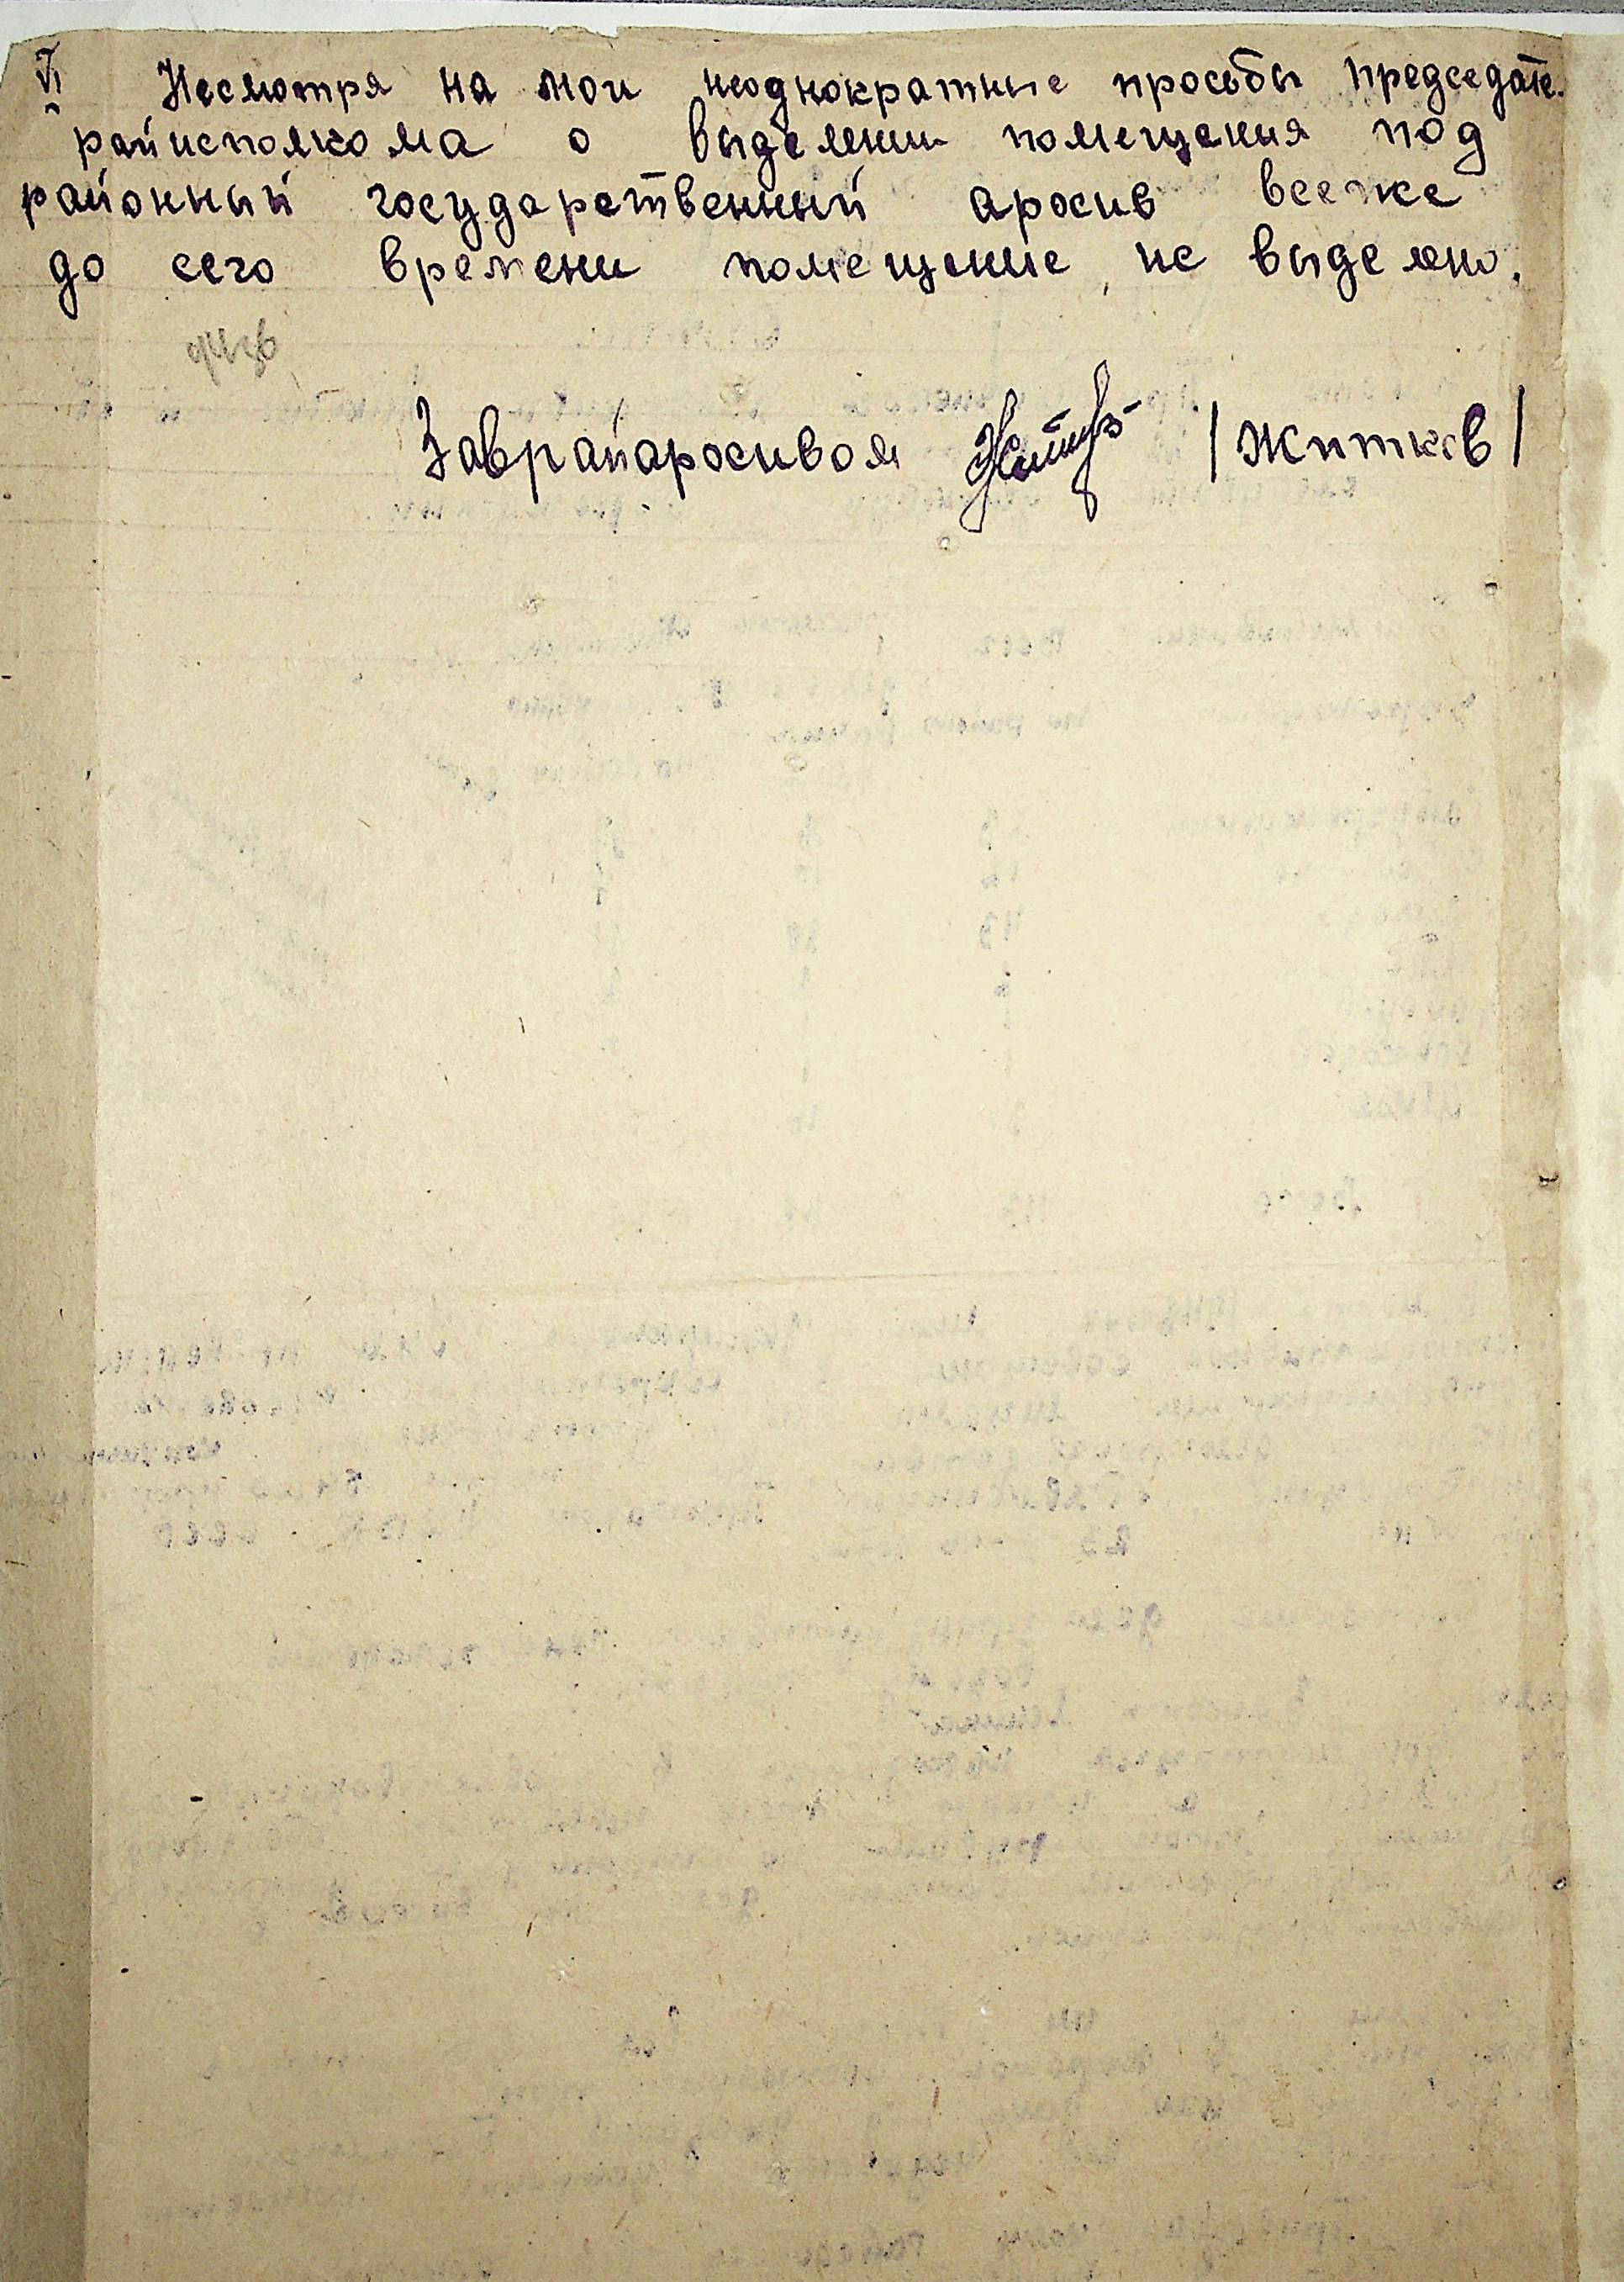 VI Несмотря на мои неоднократные просьбы председате.
райисполкома о выделении помещения под
районный государственный архив все же
до сего времени помещение не выделено.
Заврайархивом /Житков/